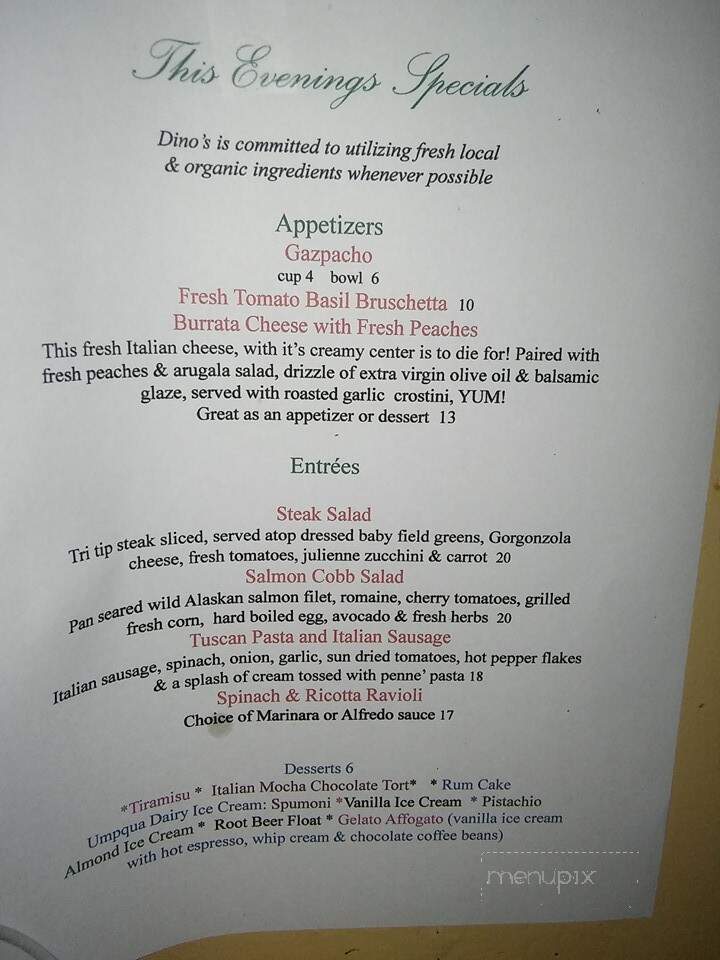 This Evenings Specials
Dino's is committed to utilizing fresh local
& organic ingredients whenever possible
Appetizers
Gazpacho
cup 4 bowl 6
Fresh Tomato Basil Bruschetta 10
Burrata Cheese with Fresh Peaches
This fresh Italian cheese, with it's creamy center is to die for! Paired with
fresh peaches & arugala salad, drizzle of extra virgin olive oil & balsamic
glaze, served with roasted garlic crostini, YUM!
Great as an appetizer or dessert 13
Entrées
Steak Salad
Tri tip steak sliced, served atop dressed baby field greens, Gorgonzola
cheese, fresh tomatoes, julienne zucchini & carrot 20
Salmon Cobb Salad
Pan seared wild Alaskan salmon filet, romaine, cherry tomatoes, grilled
fresh corn, hard boiled egg, avocado & fresh herbs 20
Tuscan Pasta and Italian Sausage
Italian sausage, spinach, onion, garlic, sun dried tomatoes, hot pepper flakes
& a splash of cream tossed with penne' pasta 18
Spinach & Ricotta Ravioli
Choice of Marinara or Alfredo sauce 17
Desserts 6
*Tiramisu * Italian Mocha Chocolate Tort* * Rum Cake
Umpqua Dairy Ice Cream: Spumoni *Vanilla Ice Cream * Pistachio
Almond Ice Cream * Root Beer Float * Gelato Affogato (vanilla ice cream
with hot espresso, whip cream & chocolate coffee beans)
menupix